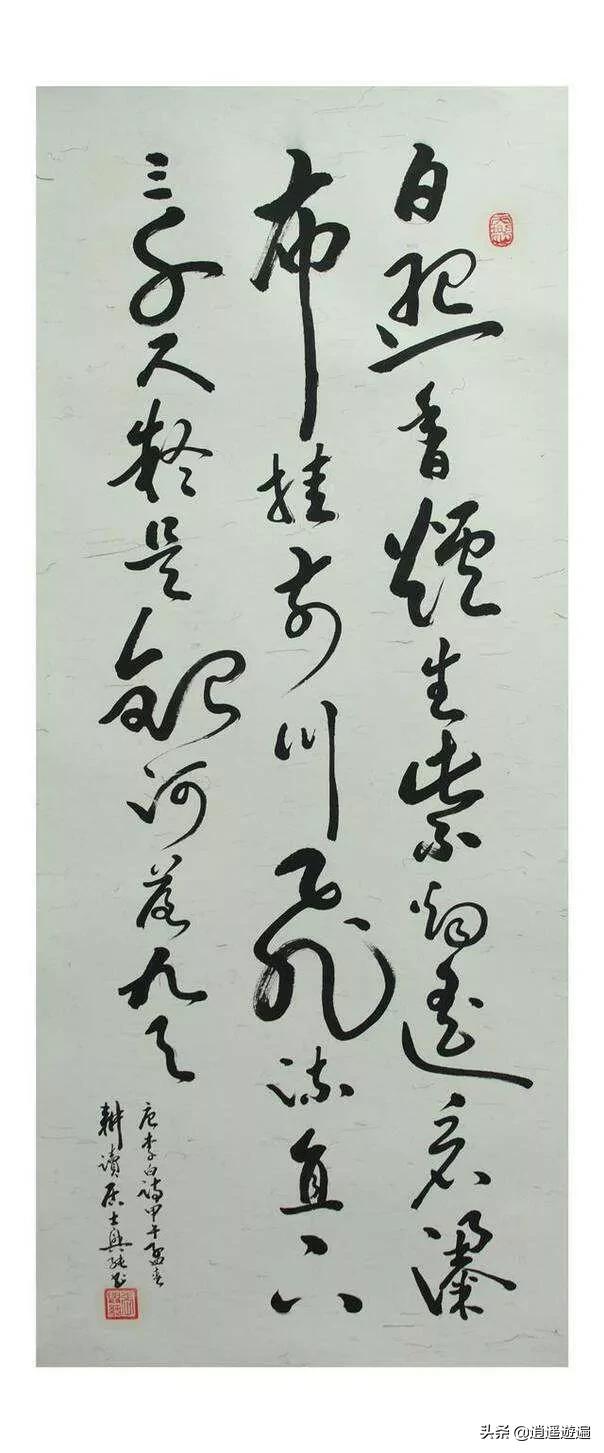 日照香爐生紫烟遥看瀑
布挂前川飛流直下
三千尺疑是銀河落九天
唐李白詩甲午孟春
耕讀居士興
头条 @逍遥遊遍